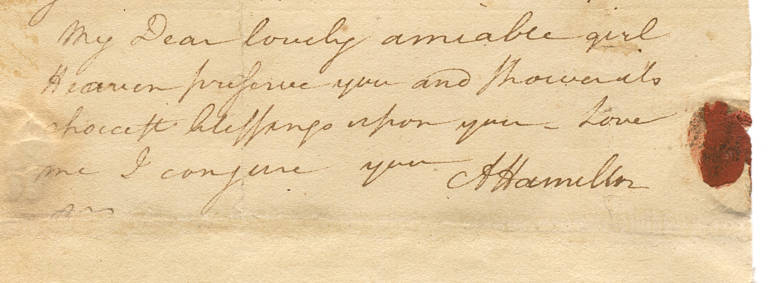 My Dear lovely amiable girl
Heaven preserve you and shower its
choicest blessings upon you – Love
me I conjure you
A Hamilton